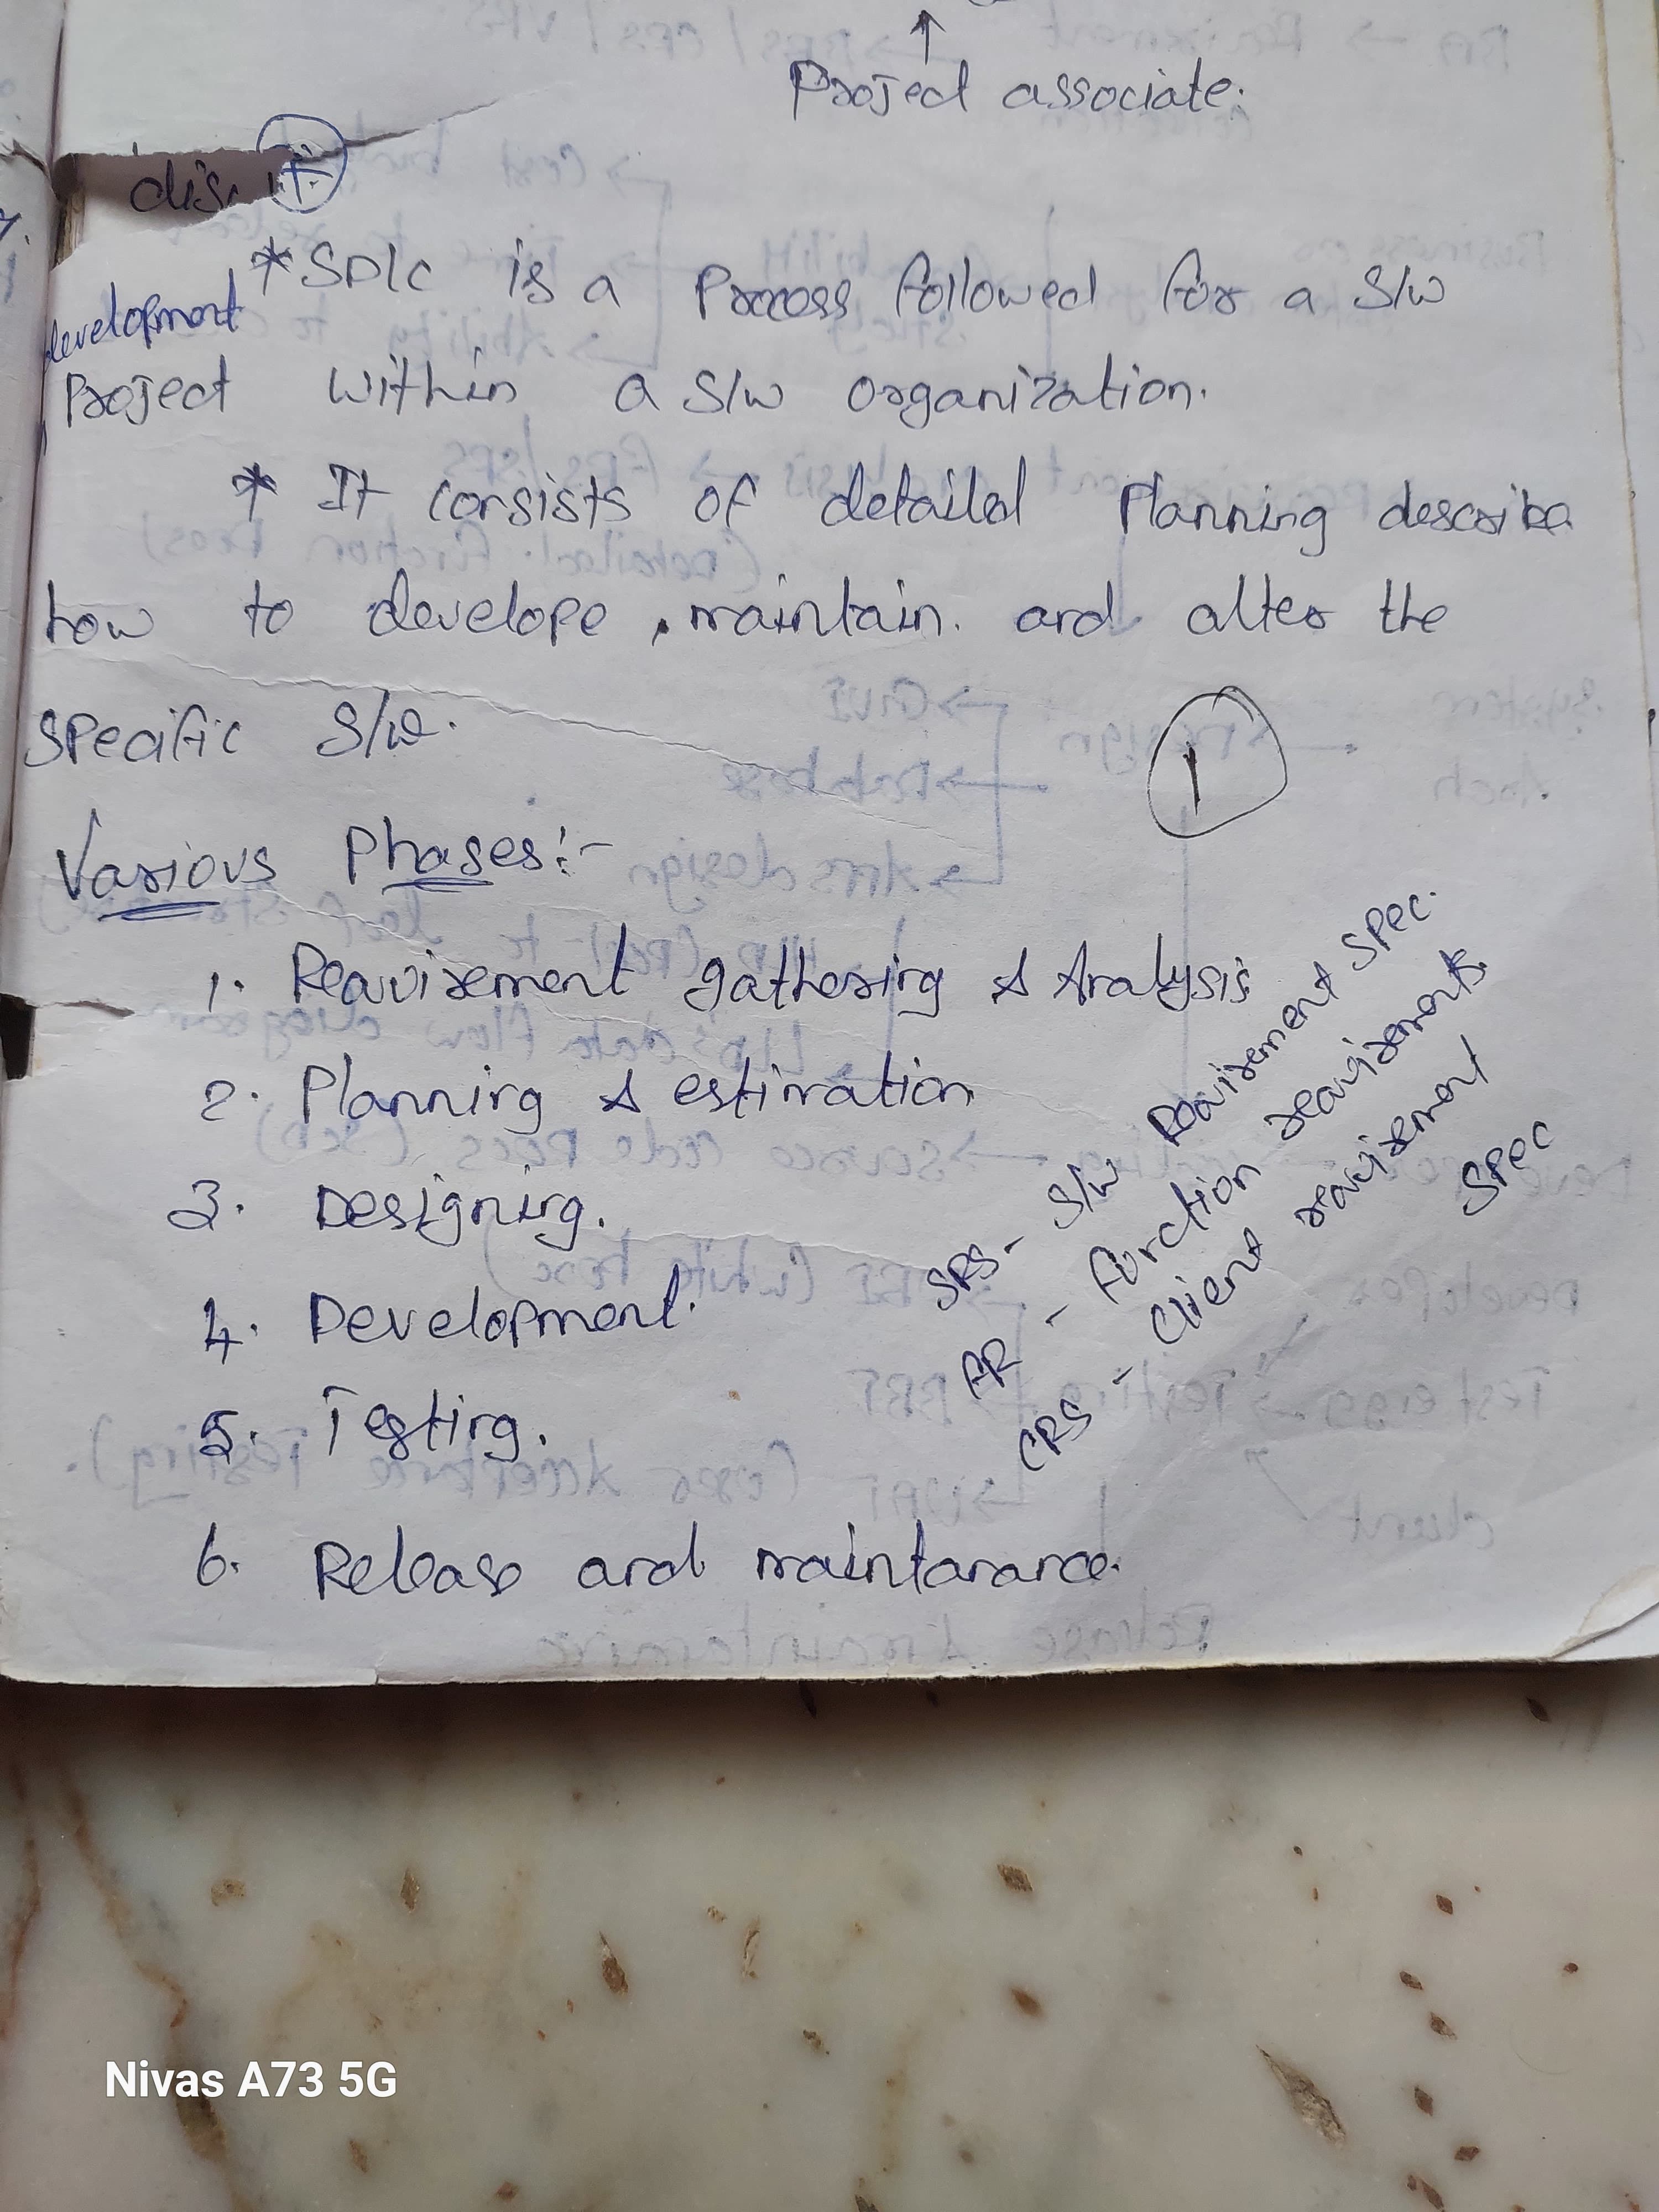 Project associate.
* SDLC is a Process followed for a S/W
development
Project within a S/W organization.
* It consists of detailed Planning describe
how to develope, maintain. and alter the
Specific S/W.
1
Various Phases:-
1. Requirement gathering & Analysis
2. Planning & estimation
3. Designing.
4. Development.
5. Testing.
6. Release and maintanance.
SRS - S/W Requirement Spec.
FR - Function requirements.
CRS - Client requirement
Spec
Nivas A73 5G